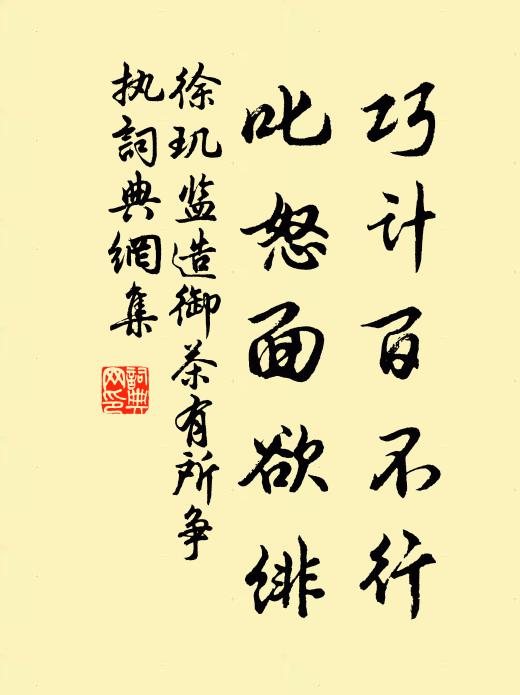 巧计百不行
叱怒面欲绯
徐玑监造御茶有所争
执詞典網集
詞典
网印